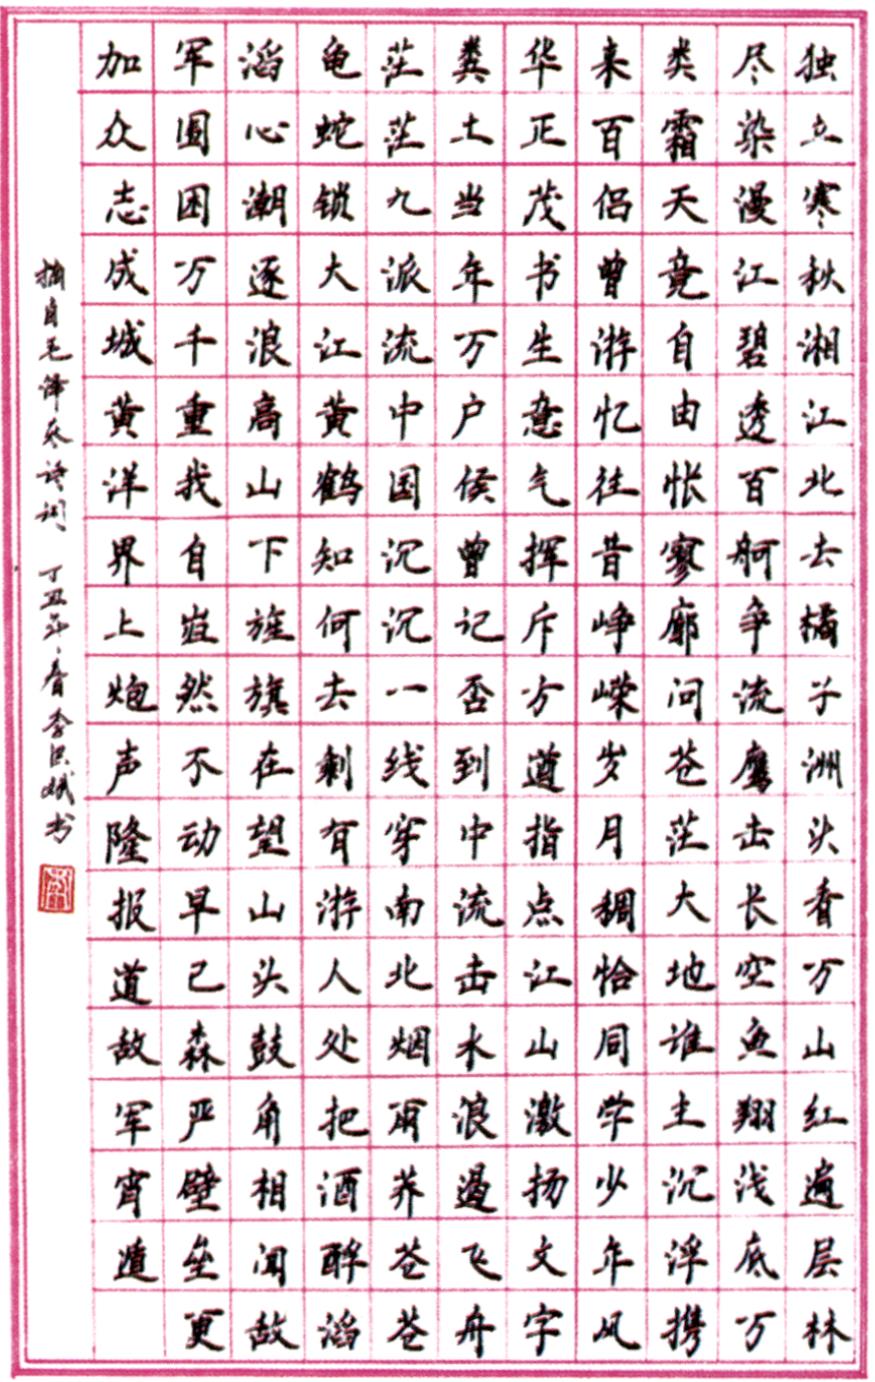 独立寒秋湘江北去橘子洲头看万山红遍层林
尽染漫江碧透百舸争流鹰击长空鱼翔浅底万
类霜天竟自由怅寥廓问苍茫大地谁主沉浮携
来百侣曾游忆往昔峥嵘岁月稠恰同学少年风
华正茂书生意气挥斥方遒指点江山激扬文字
粪土当年万户侯曾记否到中流击水浪遏飞舟
茫茫九派流中国沉沉一线穿南北烟雨莽苍苍
龟蛇锁大江黄鹤知何去剩有游人处把酒酹滔
滔心潮逐浪高山下旌旗在望山头鼓角相闻敌
军围困万千重我自岿然不动早已森严壁垒更
加众志成城黄洋界上炮声隆报道敌军宵遁
摘自毛泽东诗词 丁丑年春李斌书